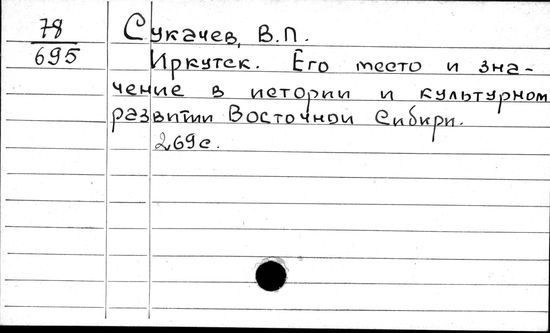 78
695
Сукачев, В.П.
Иркутск. Его место и зна-
чение в истории и культурном
развитии Восточной Сибири.
269с.